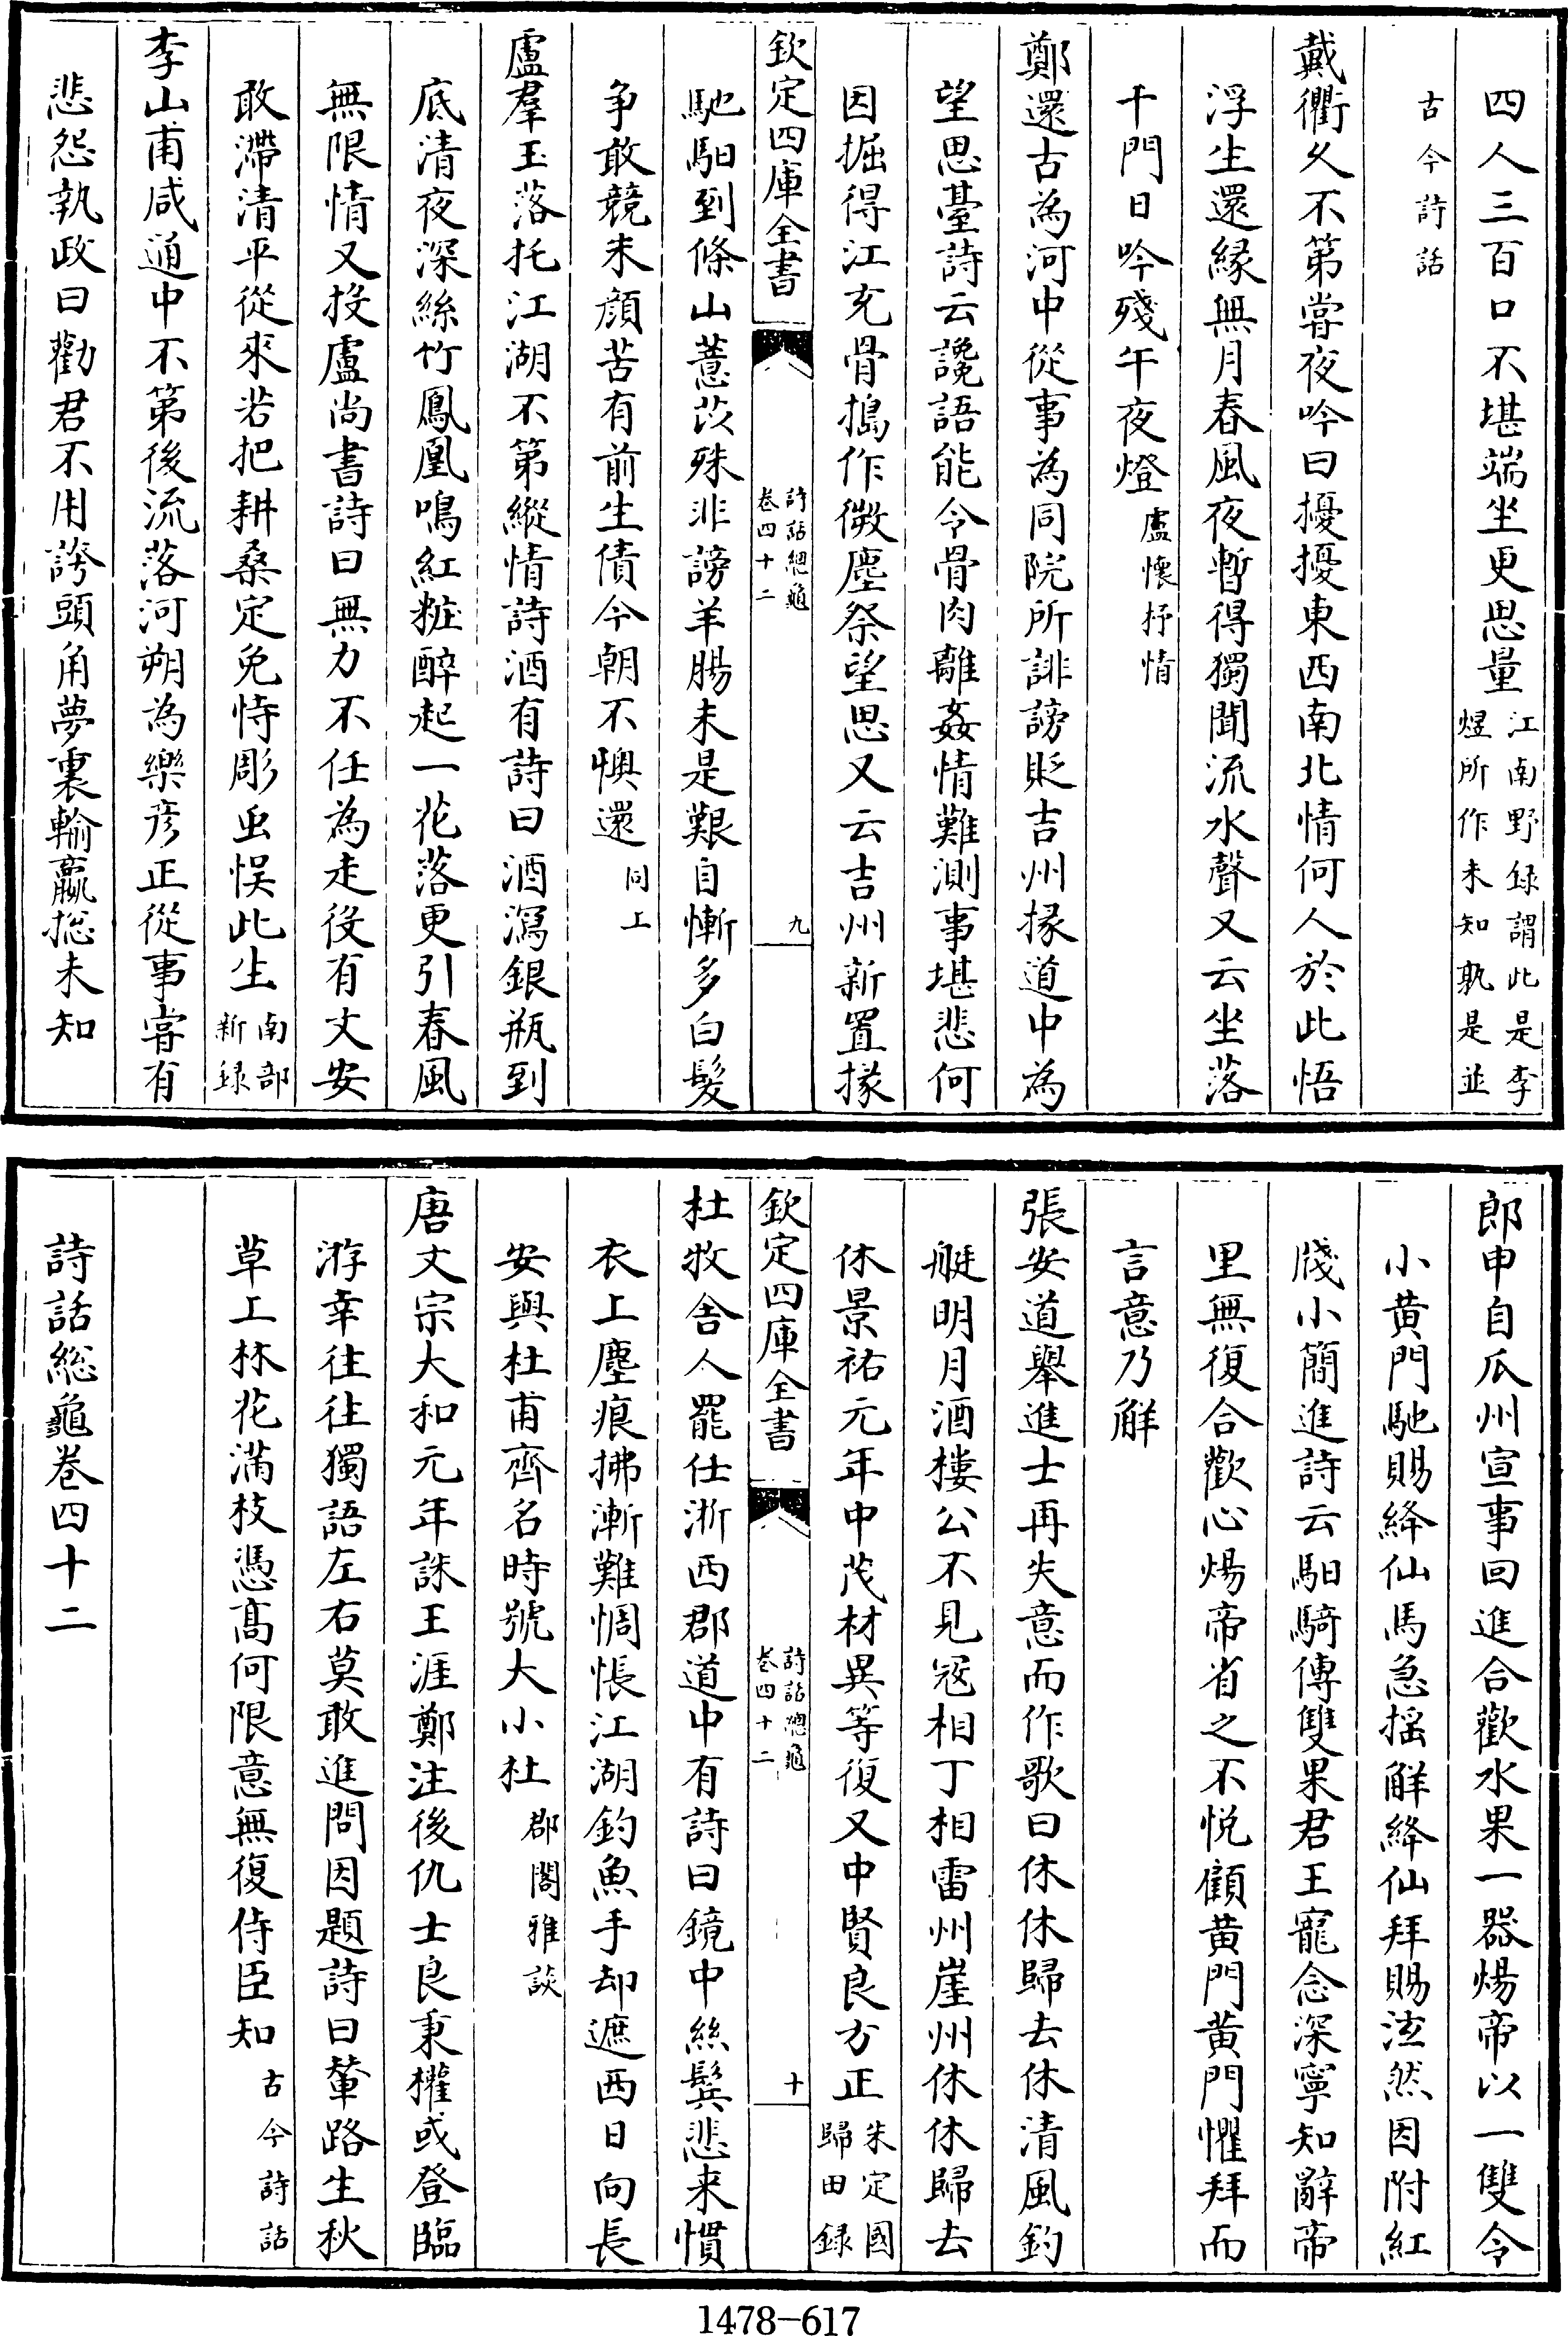 四人三百口不堪端坐更思量江南野録謂此是李
煜所作未知孰是並
古今詩話
戴衢久不第嘗夜吟曰擾擾東西南北情何人於此悟
浮生還緣無月春風夜暫得獨聞流水聲又云坐落
千門日吟殘午夜燈盧懷抒情
鄭還古為河中從事為同院所誹謗貶吉州掾道中為
望思臺詩云讒語能令骨肉離姦情難測事堪悲何
因掘得江充骨搗作微塵祭望思又云吉州新置掾
馳馹到條山薏苡殊非謗羊腸未是艱自慚多白髮
争敢競朱顔苦有前生債今朝不懊還同上
盧羣玉落托江湖不第縱情詩酒有詩曰酒瀉銀瓶到
底清夜深絲竹鳳凰鳴紅粧醉起一花落更引春風
無限情又投盧尚書詩曰無力不任為走役有文安
敢滯清平從來若把耕桑定免恃彫虫悞此生南部
新録
李山甫咸通中不第後流落河朔為樂彥正從事嘗有
悲怨執政曰勸君不用誇頭角夢裏輸贏揔未知
欽定四庫全書
詩話總龜
卷四十二
九
郎申自瓜州宣事回進合歡水果一器煬帝以一雙令
小黄門馳賜絳仙馬急揺解絳仙拜賜泫然因附紅
牋小簡進詩云馹騎傳雙果君王寵念深寧知辭帝
里無復合歡心煬帝省之不悦顧黄門黄門懼拜而
言意乃解
張安道舉進士再失意而作歌曰休休歸去休清風釣
艇明月酒樓公不見冦相丁相雷州崖州休休歸去
休景祐元年中茂材異等復又中賢良方正朱定國
歸田録
杜牧舍人罷仕浙西郡道中有詩曰鏡中絲鬂悲来慣
衣上塵痕拂漸難惆悵江湖釣魚手却遮西日向長
安與杜甫齊名時號大小杜郡閣雅談
唐文宗大和元年誅王涯鄭注後仇士良秉權或登臨
游幸往往獨語左右莫敢進問因題詩曰輦路生秋
草上林花滿枝憑髙何限意無復侍臣知古今詩話
詩話総龜卷四十二
欽定四庫全書
詩話總龜
卷四十二
十
1478-617